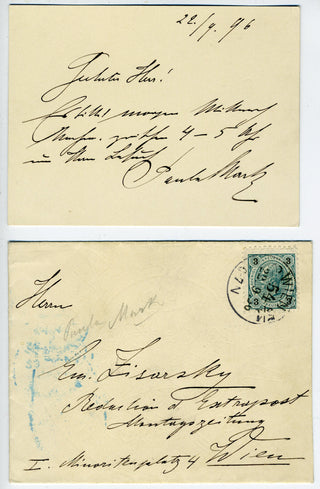 22./9. 96
Geehrter Herr!
Es bittet morgen Mittwoch
Nachm. zwischen 4 – 5 Uhr
um Ihren Besuch
Paula Mark
WIEN
Herrn
Paula Mark
Em.
Redaction d. Extrapost
Montagszeitung
I. Minoritenplatz 4 Wien